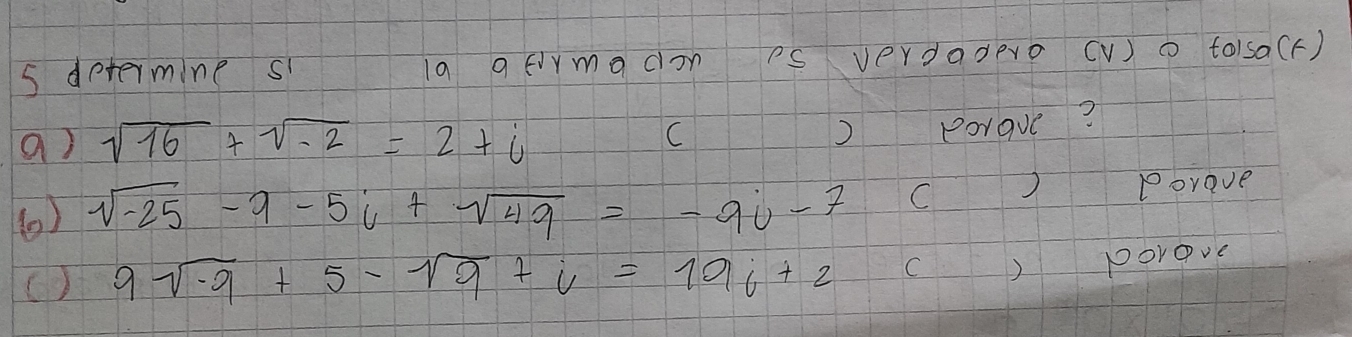 5 determine si la afirmacion es verdadera (V) o falsa (F)
a) √16 + √-2 = 2 + i ( ) Porque ?
b) √-25 - 9 - 5i + √49 = - 9i - 7 ( ) Porque
c) 9√-9 + 5 - √9 + i = 19i + 2 ( ) porque